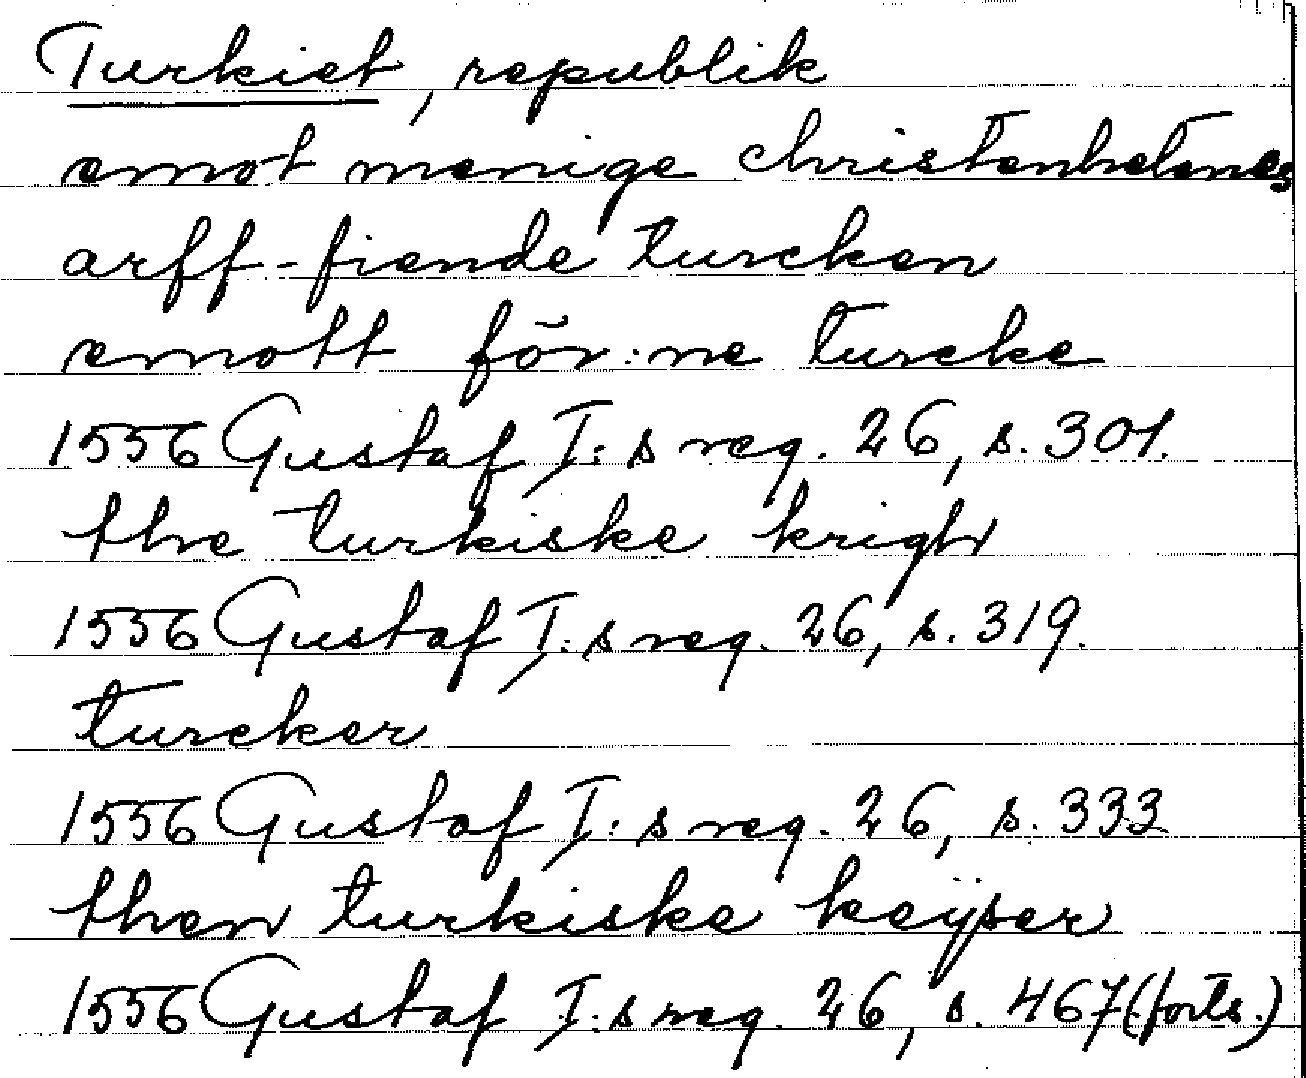 Turkiet, republik
emot menige christenhetenes
arff-fiende turcken
emott för:ne turcke
1556 Gustaf I:s reg. 26, s. 301.
the turkiske krigh
1556 Gustaf I:s reg. 26, s. 319.
turcker
1556 Gustaf I:s reg. 26, s. 333
then turkiske keÿser
1556 Gustaf I:s reg. 26, s. 467 (forts.)